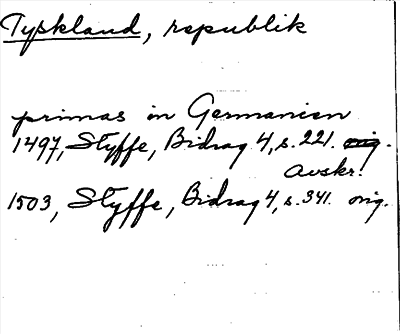 Tyskland, republik
primas in Germanien
1497, Styffe, Bidrag 4, s. 221. orig.
Avskr.
1503, Styffe, Bidrag 4, s. 341. orig.